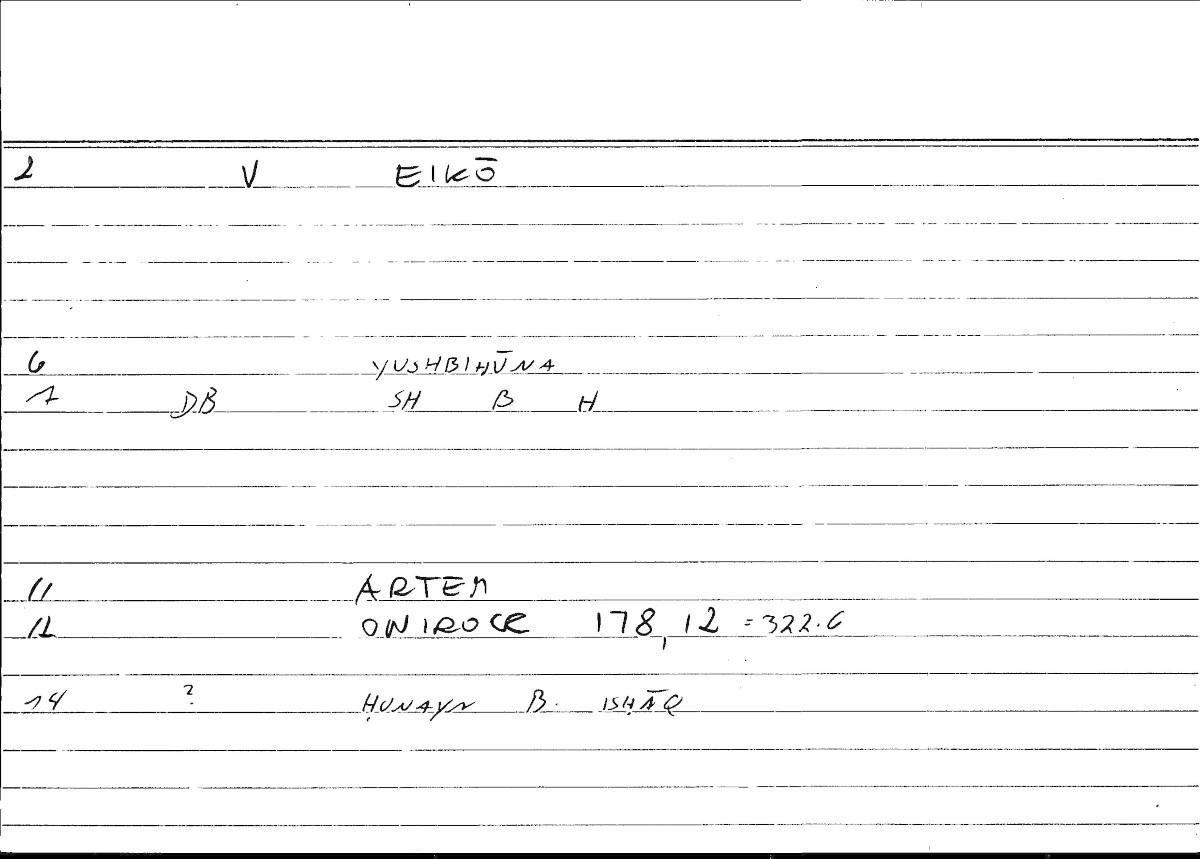 2 V EIKŌ
6 YUSHBIHŪNA
1 DB SH B H
11 ARTEM
12 ONIROCR 178,12 =322.6
14 ? ḤUNAYN B. ISḤĀQ